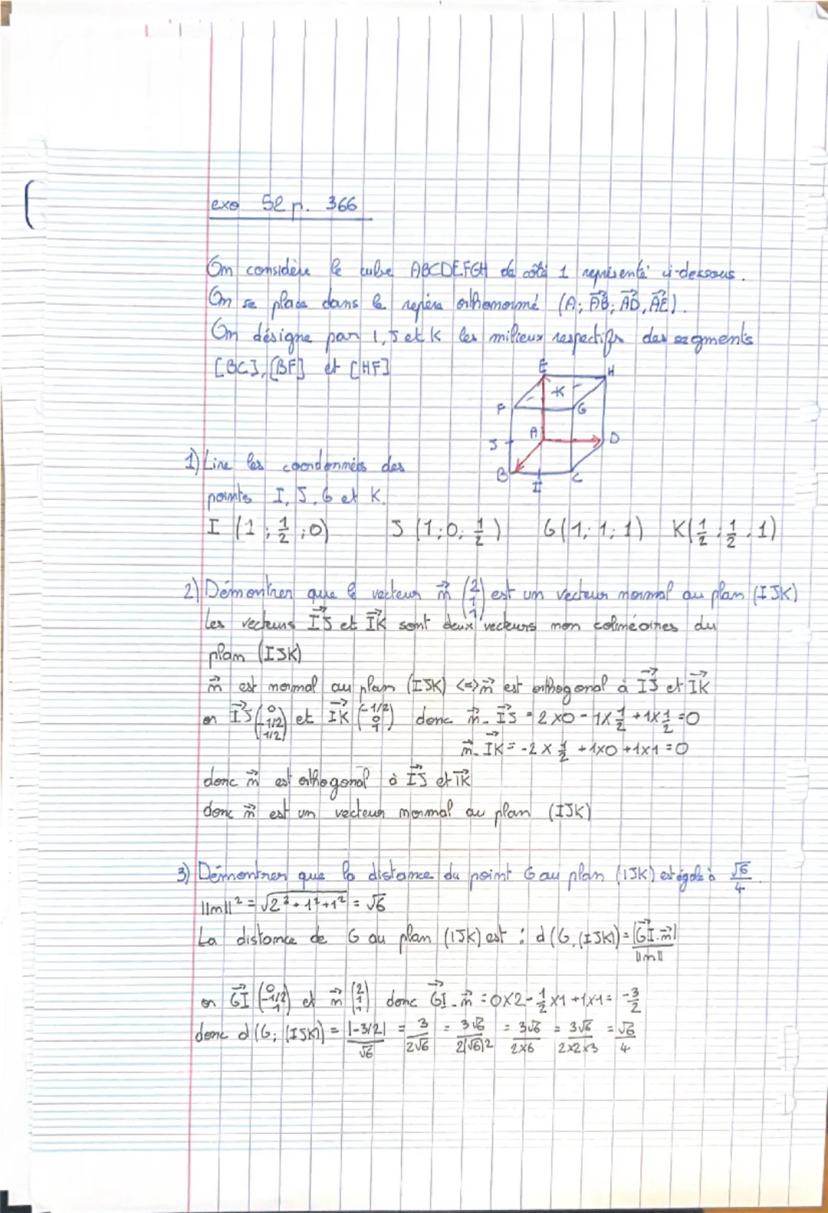 exo 52 p. 366
On considère le cube ABCDEFGH de côté 1 représenté ci-dessous.
On se place dans le repère orthonormé (A; \vec{AB}, \vec{AD}, \vec{AE}).
On désigne par I, J et K les milieux respectifs des segments
[BC], [BF] et [HF]
E H
K
F G
A D
J
B C
I
1) Lire les coordonnées des
points I, J, G et K.
I (1; 1/2; 0) J (1; 0; 1/2) G(1; 1; 1) K(1/2; 1/2; 1)
2) Démontrer que le vecteur \vec{n} (2 1 1) est un vecteur normal au plan (IJK)
Les vecteurs \vec{IJ} et \vec{IK} sont deux vecteurs non colinéaires du
plan (IJK)
\vec{n} est normal au plan (IJK) <=> \vec{n} est orthogonal à \vec{IJ} et \vec{IK}
or \vec{IJ} (0 -1/2 1/2) et \vec{IK} (-1/2 0 1) donc \vec{n}. \vec{IJ} = 2×0 - 1×1/2 + 1×1/2 = 0
\vec{n}. \vec{IK} = -2×1/2 + 1×0 + 1×1 = 0
donc \vec{n} est orthogonal à \vec{IJ} et \vec{IK}
donc \vec{n} est un vecteur normal au plan (IJK)
3) Démontrer que la distance du point G au plan (IJK) est égale à √6/4.
||n||² = √(2² + 1² + 1²) = √6
La distance de G au plan (IJK) est : d(G, (IJK) = |\vec{GI}.\vec{n}|/||n||
or \vec{GI} (0 -1/2 -1) et \vec{n} (2 1 1) donc \vec{GI}.\vec{n} = 0×2 - 1/2×1 + 1×1 = -3/2
donc d(G; (IJK) = |-3/2|/√6 = 3/2√6 = 3√6/2(√6)² = 3√6/2×6 = 3√6/2×2×3 = √6/4